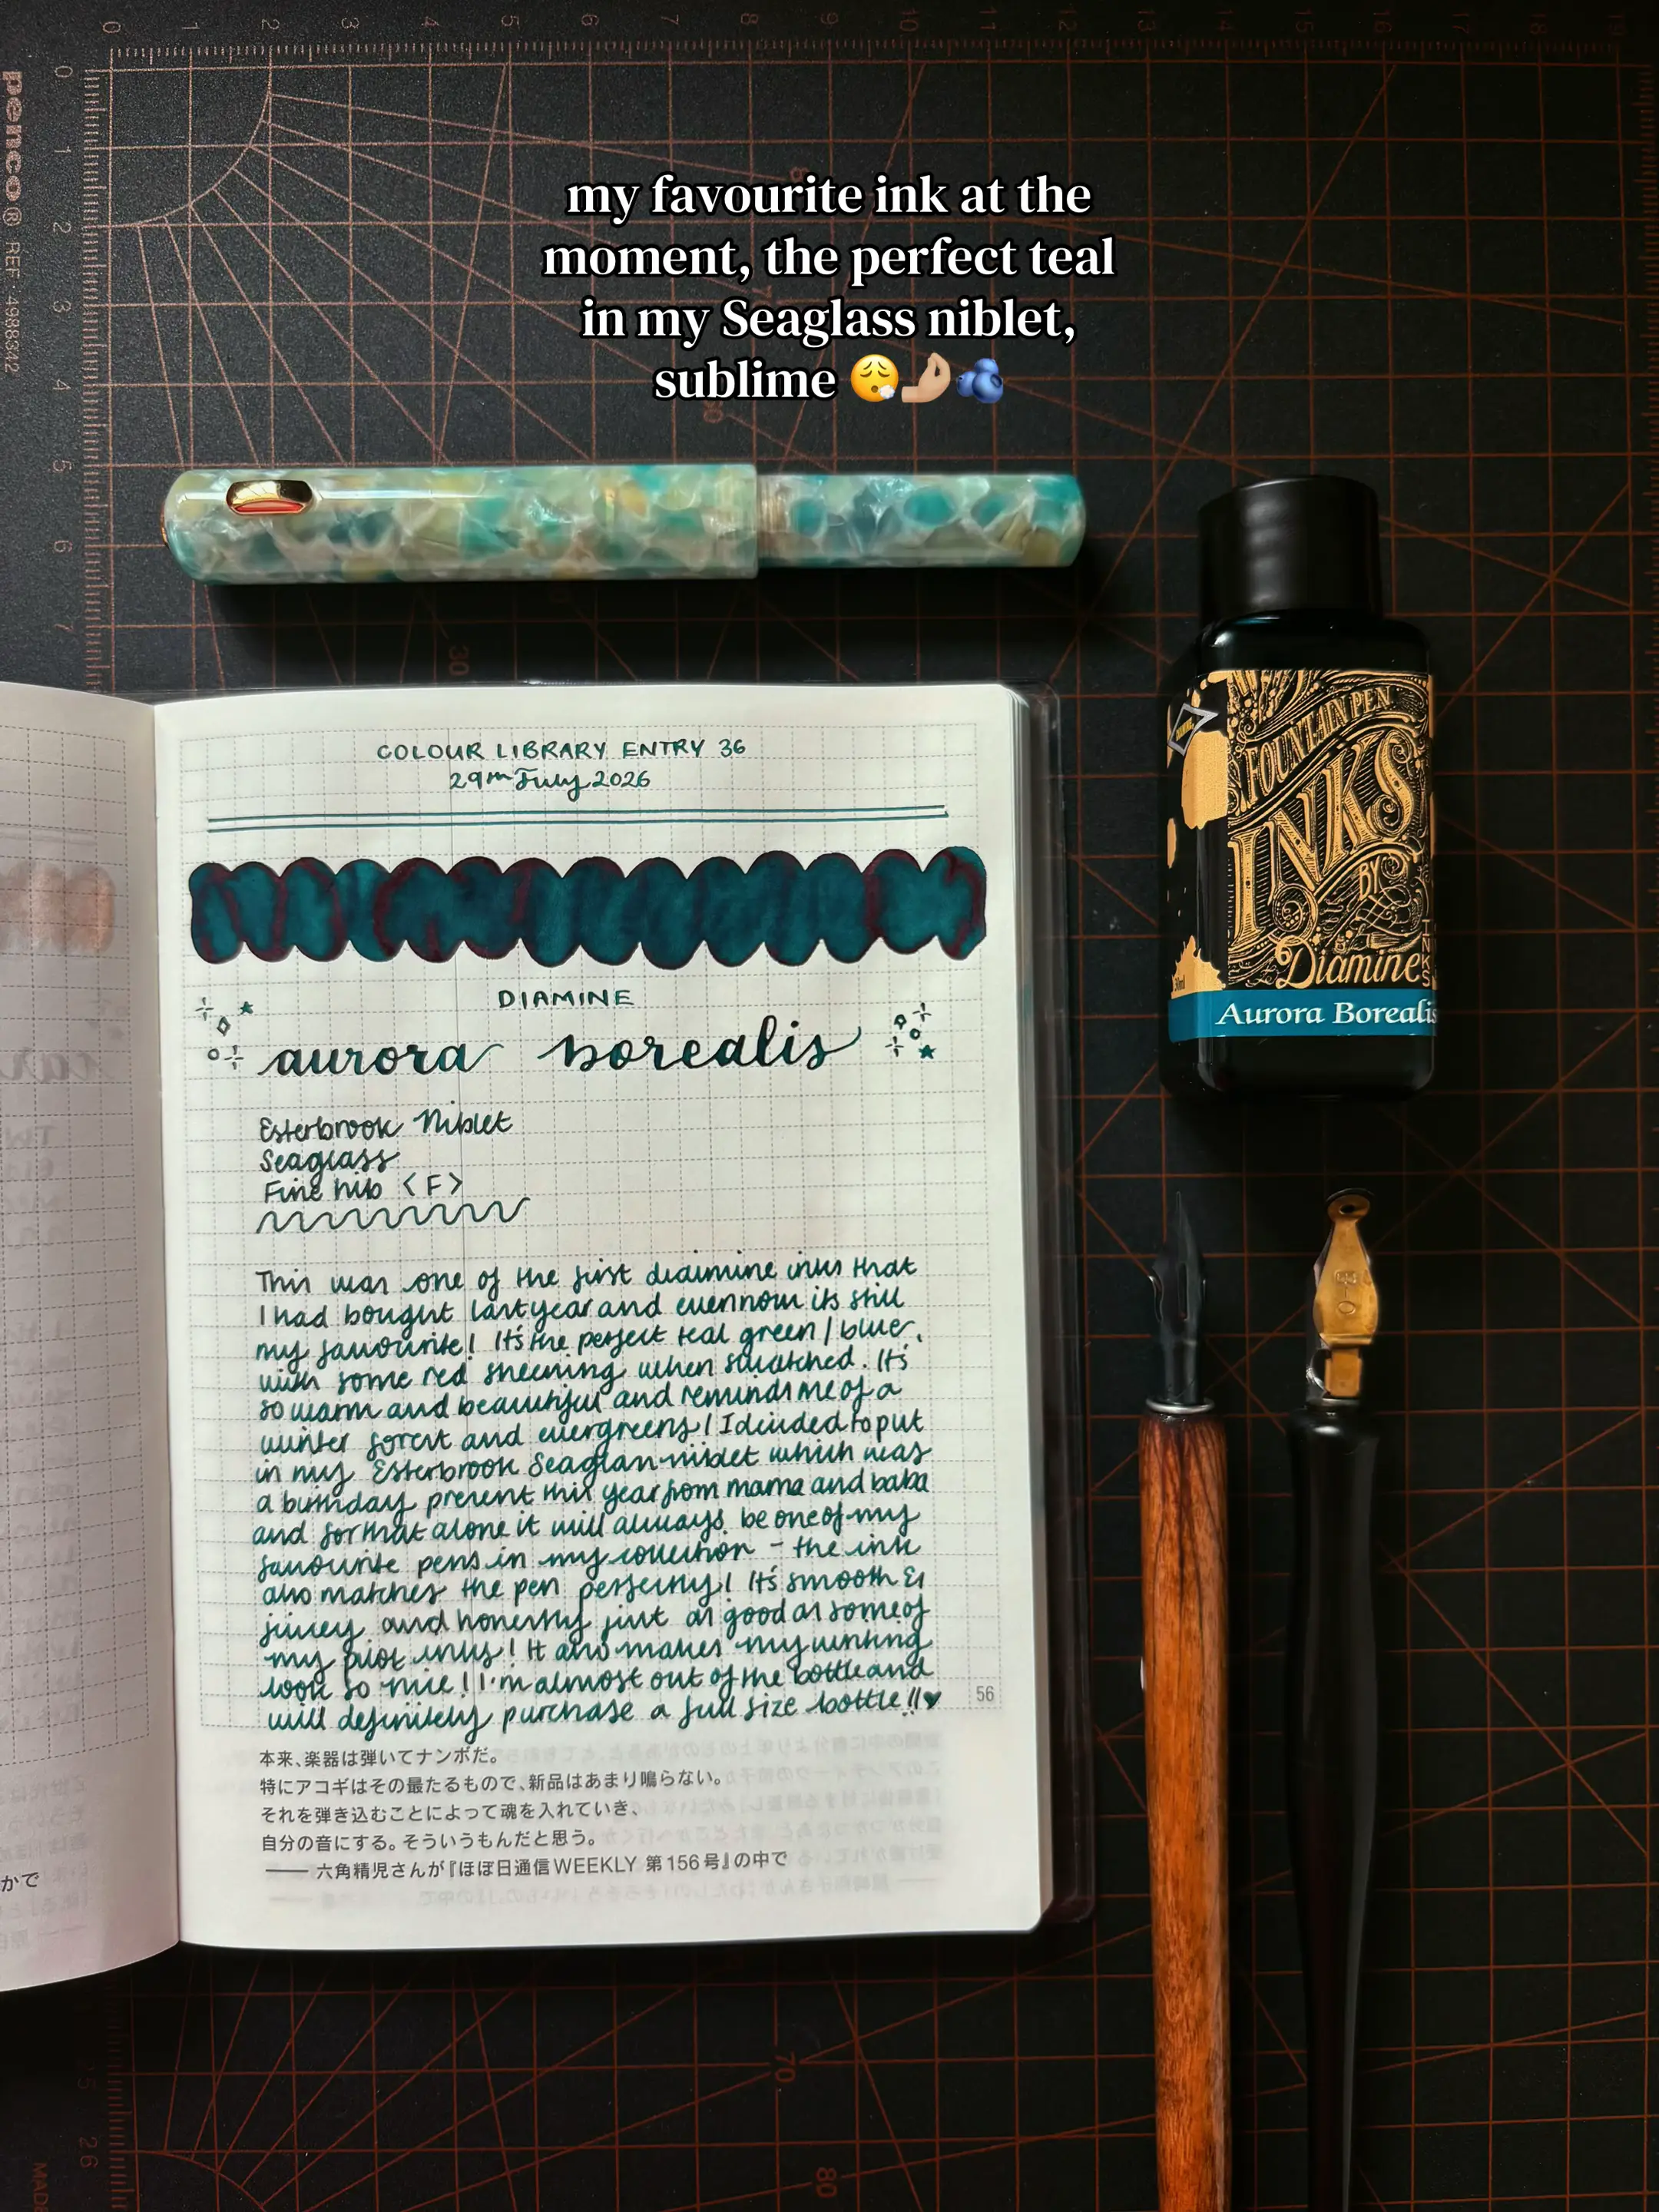 my favourite ink at the
moment, the perfect teal
in my Seaglass niblet,
sublime 😮‍💨🤌🏼🫐
0 1 2 3 4 5 6 7 8 9 10 11 12 13 14 15 16 17 18 19
0
1
2
3
4
5
6
7
penco® REF·4988342
30
COLOUR LIBRARY ENTRY 36
29th July 2026
DIAMINE
aurora borealis
Esterbrook Niblet
Seaglass
Fine nib <F>
This was one of the first diaimine inks that
I had bought last year and even now its still
my favourite! It's the perfect teal green/blue,
with some red sheening when swatched. It's
so warm and beautiful and reminds me of a
winter forest and evergreens! I decided to put
in my Esterbrook Seaglass niblet which was
a birthday present this year from mama and baba
and for that alone it will always be one of my
favourite pens in my collection - the ink
also matches the pen perfectly! It's smooth &
juicy and honestly just as good as some of
my pilot inks! It also makes my writing
look so nice! I'm almost out of the bottle and
will definitely purchase a full size bottle!!♥
56
本来、楽器は弾いてナンボだ。
特にアコギはその最たるもので、新品はあまり鳴らない。
それを弾き込むことによって魂を入れていき、
自分の音にする。そういうもんだと思う。
—— 六角精児さんが『ほぼ日通信WEEKLY 第156号』の中で
かで
FOUNTAIN PEN
INKS
BY
Diamine
INKS
30ml
Aurora Borealis
70
80
26
MADE